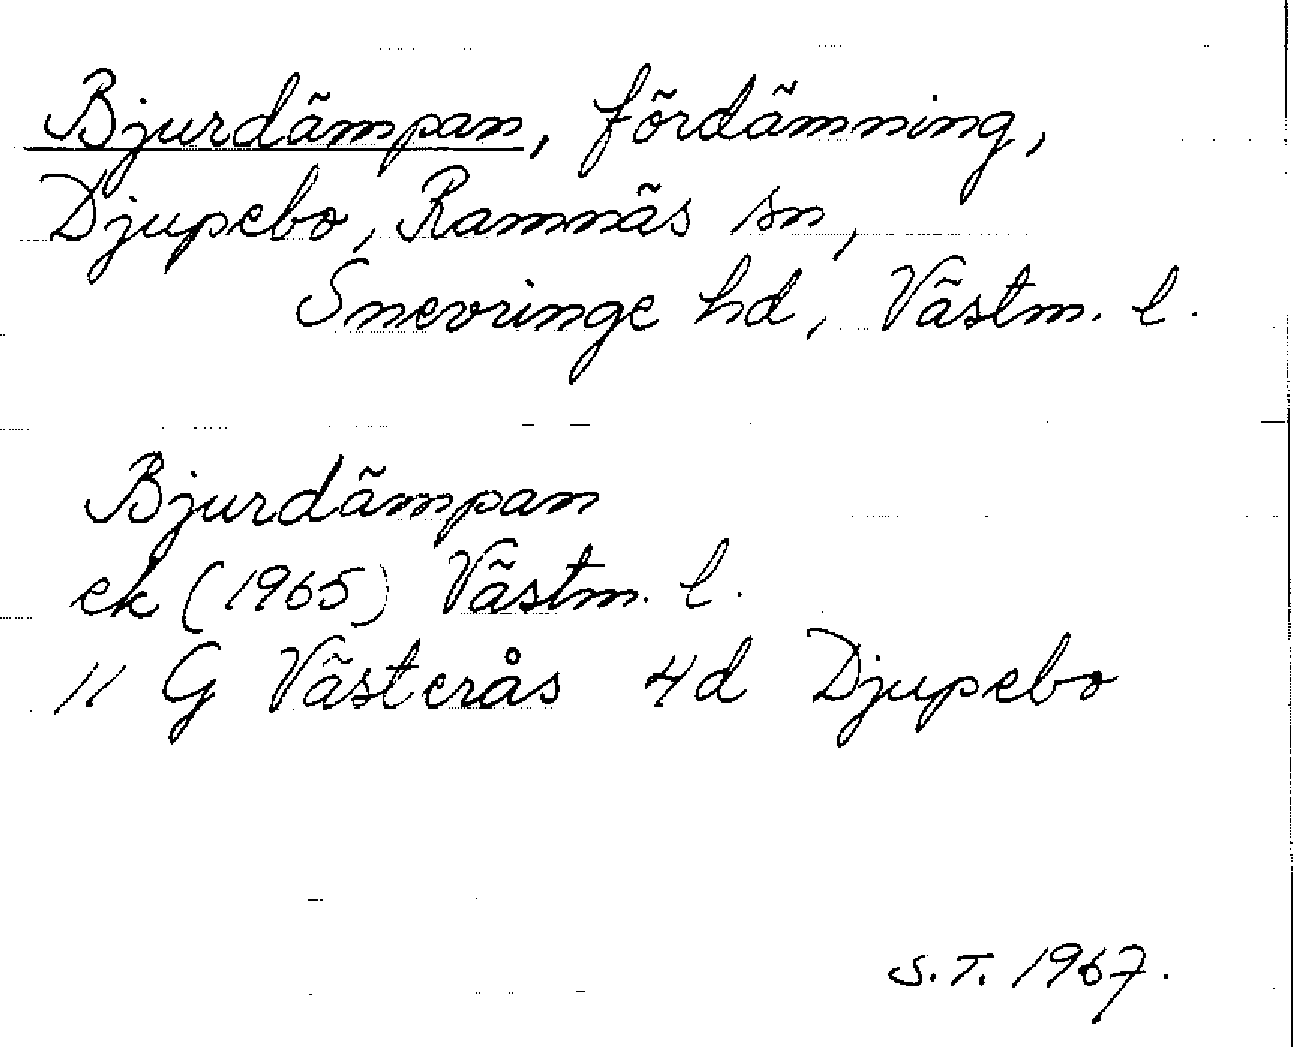 Bjurdämpan, fördämning,
Djupebo, Ramnäs sn,
Snevringe hd, Västm. l.
Bjurdämpan
ek (1965) Västm. l.
11 G Västerås 4d Djupebo
S.T. 1967.